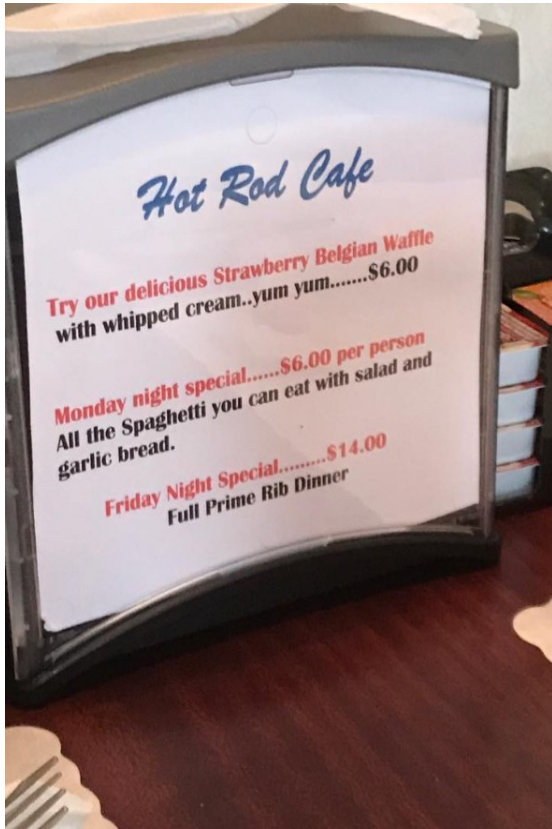 Hot Rod Cafe
Try our delicious Strawberry Belgian Waffle
with whipped cream..yum yum.......$6.00
Monday night special......$6.00 per person
All the Spaghetti you can eat with salad and
garlic bread.
Friday Night Special.........$14.00
Full Prime Rib Dinner